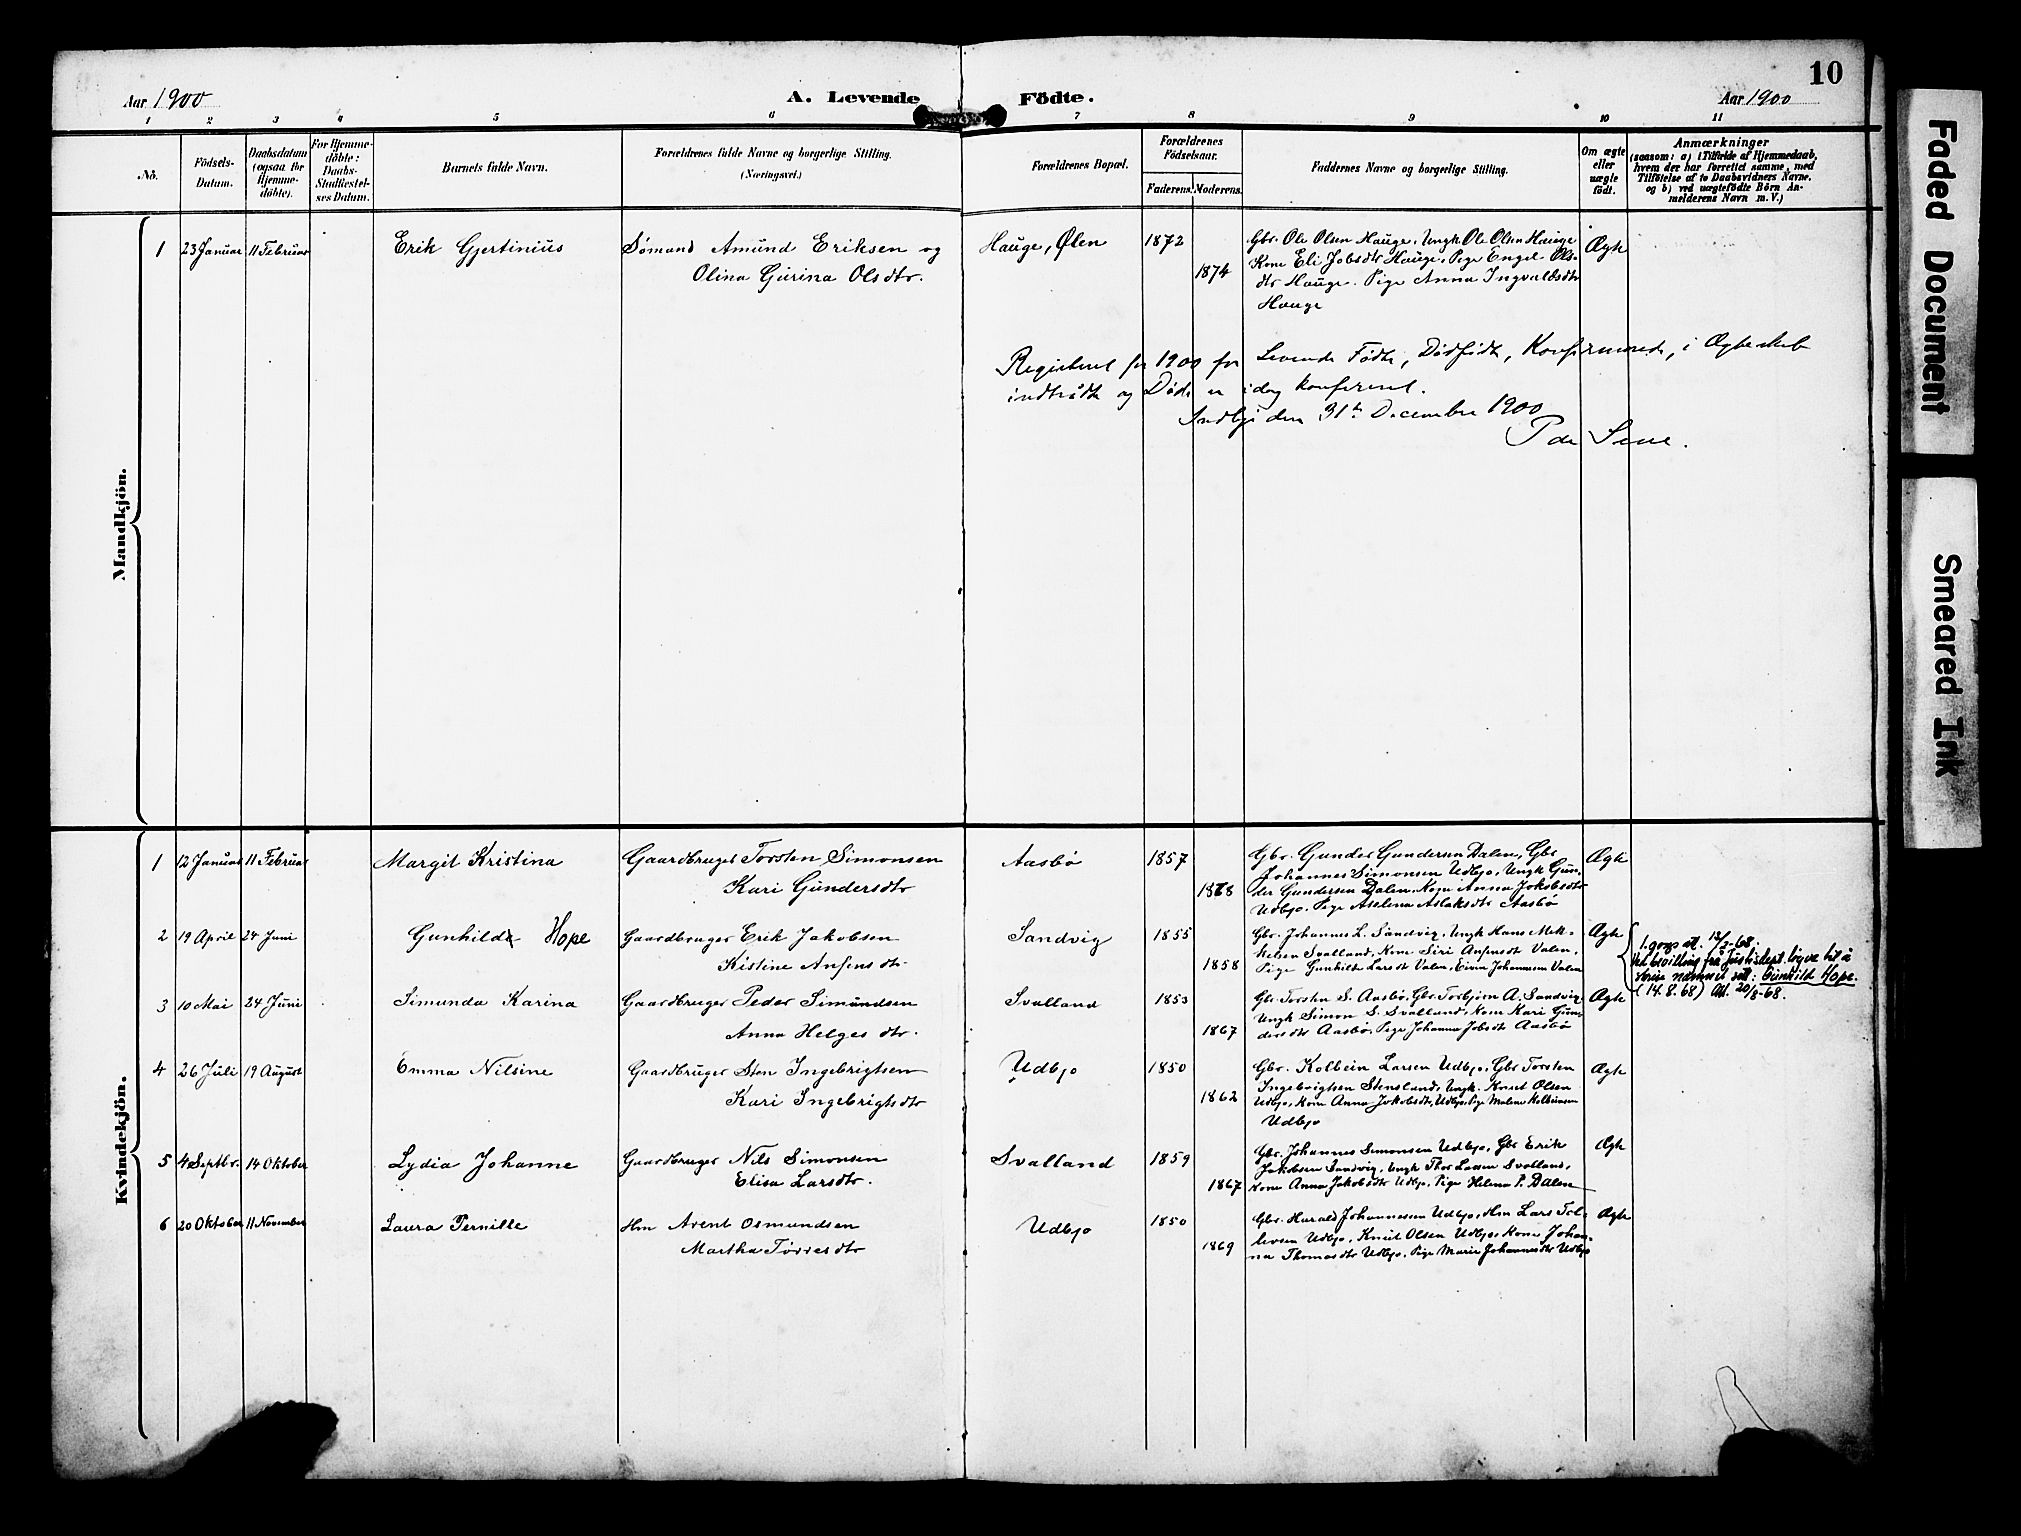 10
Aar 1900
A. Levende Födte.
Aar 1900
1 2 3 4 5 6 7 8 9 10 11
No.
Födsels-
Datum.
Daabsdatum
(ogsaa for
Hjemme-
döbte).
For Hjemme-
döbte:
Daabs-
Stadfæstel-
ses Datum.
Barnets fulde Navn.
Forældrenes fulde Navne og borgerlige Stilling.
(Næringsvei.)
Forældrenes Bopæl.
Forældrenes
Födselsaar.
Faderens. Moderens.
Faddernes Navne og borgerlige Stilling.
Om ægte
eller
uægte
födt.
Anmærkninger
(saasom: a) i Tilfælde af Hjemmedaab,
hvem der har forrettet samme, med
Tilföielse af to Daabsvidners Navne,
og b) ved uægtefödte Börn An-
melderens Navn m. V.)
Mandkjön.
1 23 Januar 11 Februar Erik Gjertinius Sømand Amund Eriksen og
Olina Gurina Olsdtr.
Hauge, Ølen 1872
1874
Gbr. Ole Olsen Hauge, Ungk Ole Olsen Hauge
Kone Eli Jobsdtr Hauge, Pige Engel Ols-
dtr Hauge. Pige Anna Ingvaldsdtr
Hauge
Ægte
Registeret for 1900 for Levende Fødte, Dødfødte, Konfirmerede, i Ægteskab
indtrådte og Døde er idag konfereret.
den 31te December 1900
Kvindekjön.
1 12 Januar 11 Februar Margit Kristina Gaardbruger Torsten Simonsen
Kari Gundersdtr
Aasbø 1857
1868
Gbr. Gunder Gundersen Dalen, Gbr
Johannes Simonsen Udbjo, Ungk Gun-
der Gundersen Dalen, Kone Anna Jakobsdtr
Udbjo. Pige Aselena Aslaksdtr Aasbø
Ægte
2 19 April 24 Juni Gunhild Hope Gaardbruger Erik Jakobsen
Kistine Anfinsdtr.
Sandvig 1855
1858
Gbr. Johannes L. Sandvig, Ungk Hans Mek-
kelsen Svalland, Kone Siri Anfinsdt Valen,
Pige Gunhild Larsdt Valen, Eivin Johannesen Valen
Ægte
1. gangs att. 13/2-68.
Ved bevilling frå Justisdept. løyve til å
skrive namnet sitt: Gunhild Hope.
(14.8.68) Att. 20/8-68.
3 10 Mai 24 Juni Simunda Karina Gaardbruger Peder Simundsen
Anna Helgesdtr.
Svalland 1853
1867
Gbr Torsten S. Aasbø, Gbr Torbjørn A. Sandvig
Ungk Simon S. Svalland, Kone Kari Gun-
dersdtr Aasbø, Pige Johanna Jobsdt Aasbø
Ægte
4 26 Juli 19 August Emma Nilsine Gaardbruger Sten Ingebrigtsen
Kari Ingebrigtsdtr
Udbjo 1850
1862
Gbr. Kolbein Larsen Udbjo, Gbr Torsten
Ingebrigtsen Stensland, Ungk. Knut Olsen
Udbjo, Kone Anna Jakobsdtr, Udbjo, Pige Malene Kolbeinsen
Udbjo
Ægte
5 4 Septbr. 14 Oktober Lydia Johanne Gaardbruger Nils Simonsen
Elisa Larsdtr.
Svalland 1859
1867
Gbr. Johannes Simonsen Udbjo, Gbr Erik
Jakobsen Sandvig, Ungk Thor Larsen Svalland,
Kone Anna Jakobsdtr Udbjo, Pige Helena P. Dalen
Ægte
6 20 Oktober 11 November Laura Pernille Hm Arent Osmundsen
Martha Tørresdtr
Udbjo 1850
1869
Gbr. Harald Johannesen Udbjo, Hm Lars Tol-
levsen Udbjo, Knut Olsen Udbjo, Kone Johan-
na Thomasdtr Udbjo, Pige Marie Johannesdtr Udbjo
Ægte
Faded Document
Smeared Ink